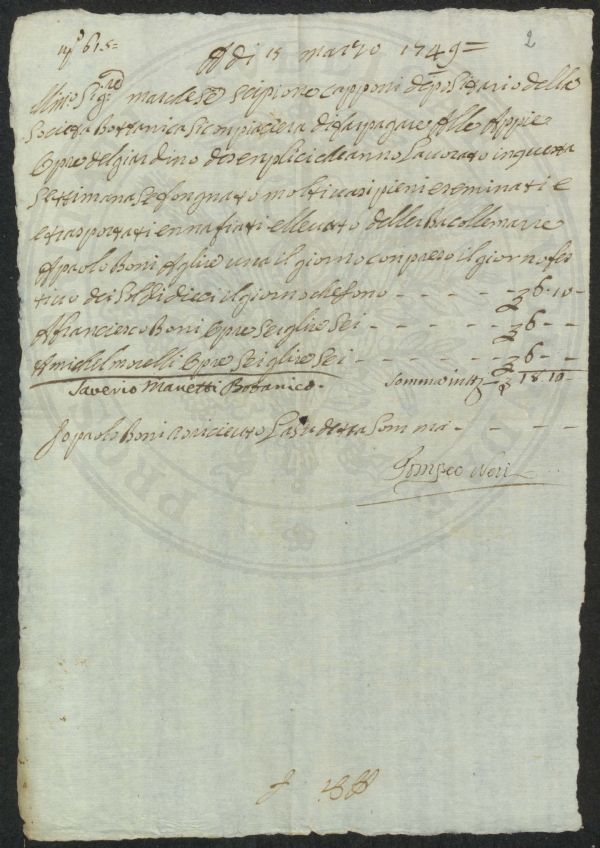 N.o 615=
A di 15 marzo 1749=
2
Illmo Sigre marchese Scipione Capponi depositario della
Società Bottanica si compiacera di far pagare Alle Appie
Opre del giardino de senplici che anno lavorato in questa
Settimana molti vasi pieni e seminati e
e trasportati e nnafiati e llevato delle
A paolo Boni A lire una il giorno conpreso il giorno fes
tivo dei Soldi dieci il giorno che sono - - - - - 6-10-
A francierco Boni Opre sei lire sei - - - - - 6 - -
A michel morelli Opre sei lire sei - - - - - 6 - -
Saverio Manetti Botanico. Somma in tt. 18-10-
Io paolo Boni o ricieuto La su detta Som ma - - - - -
Pompeo Neri